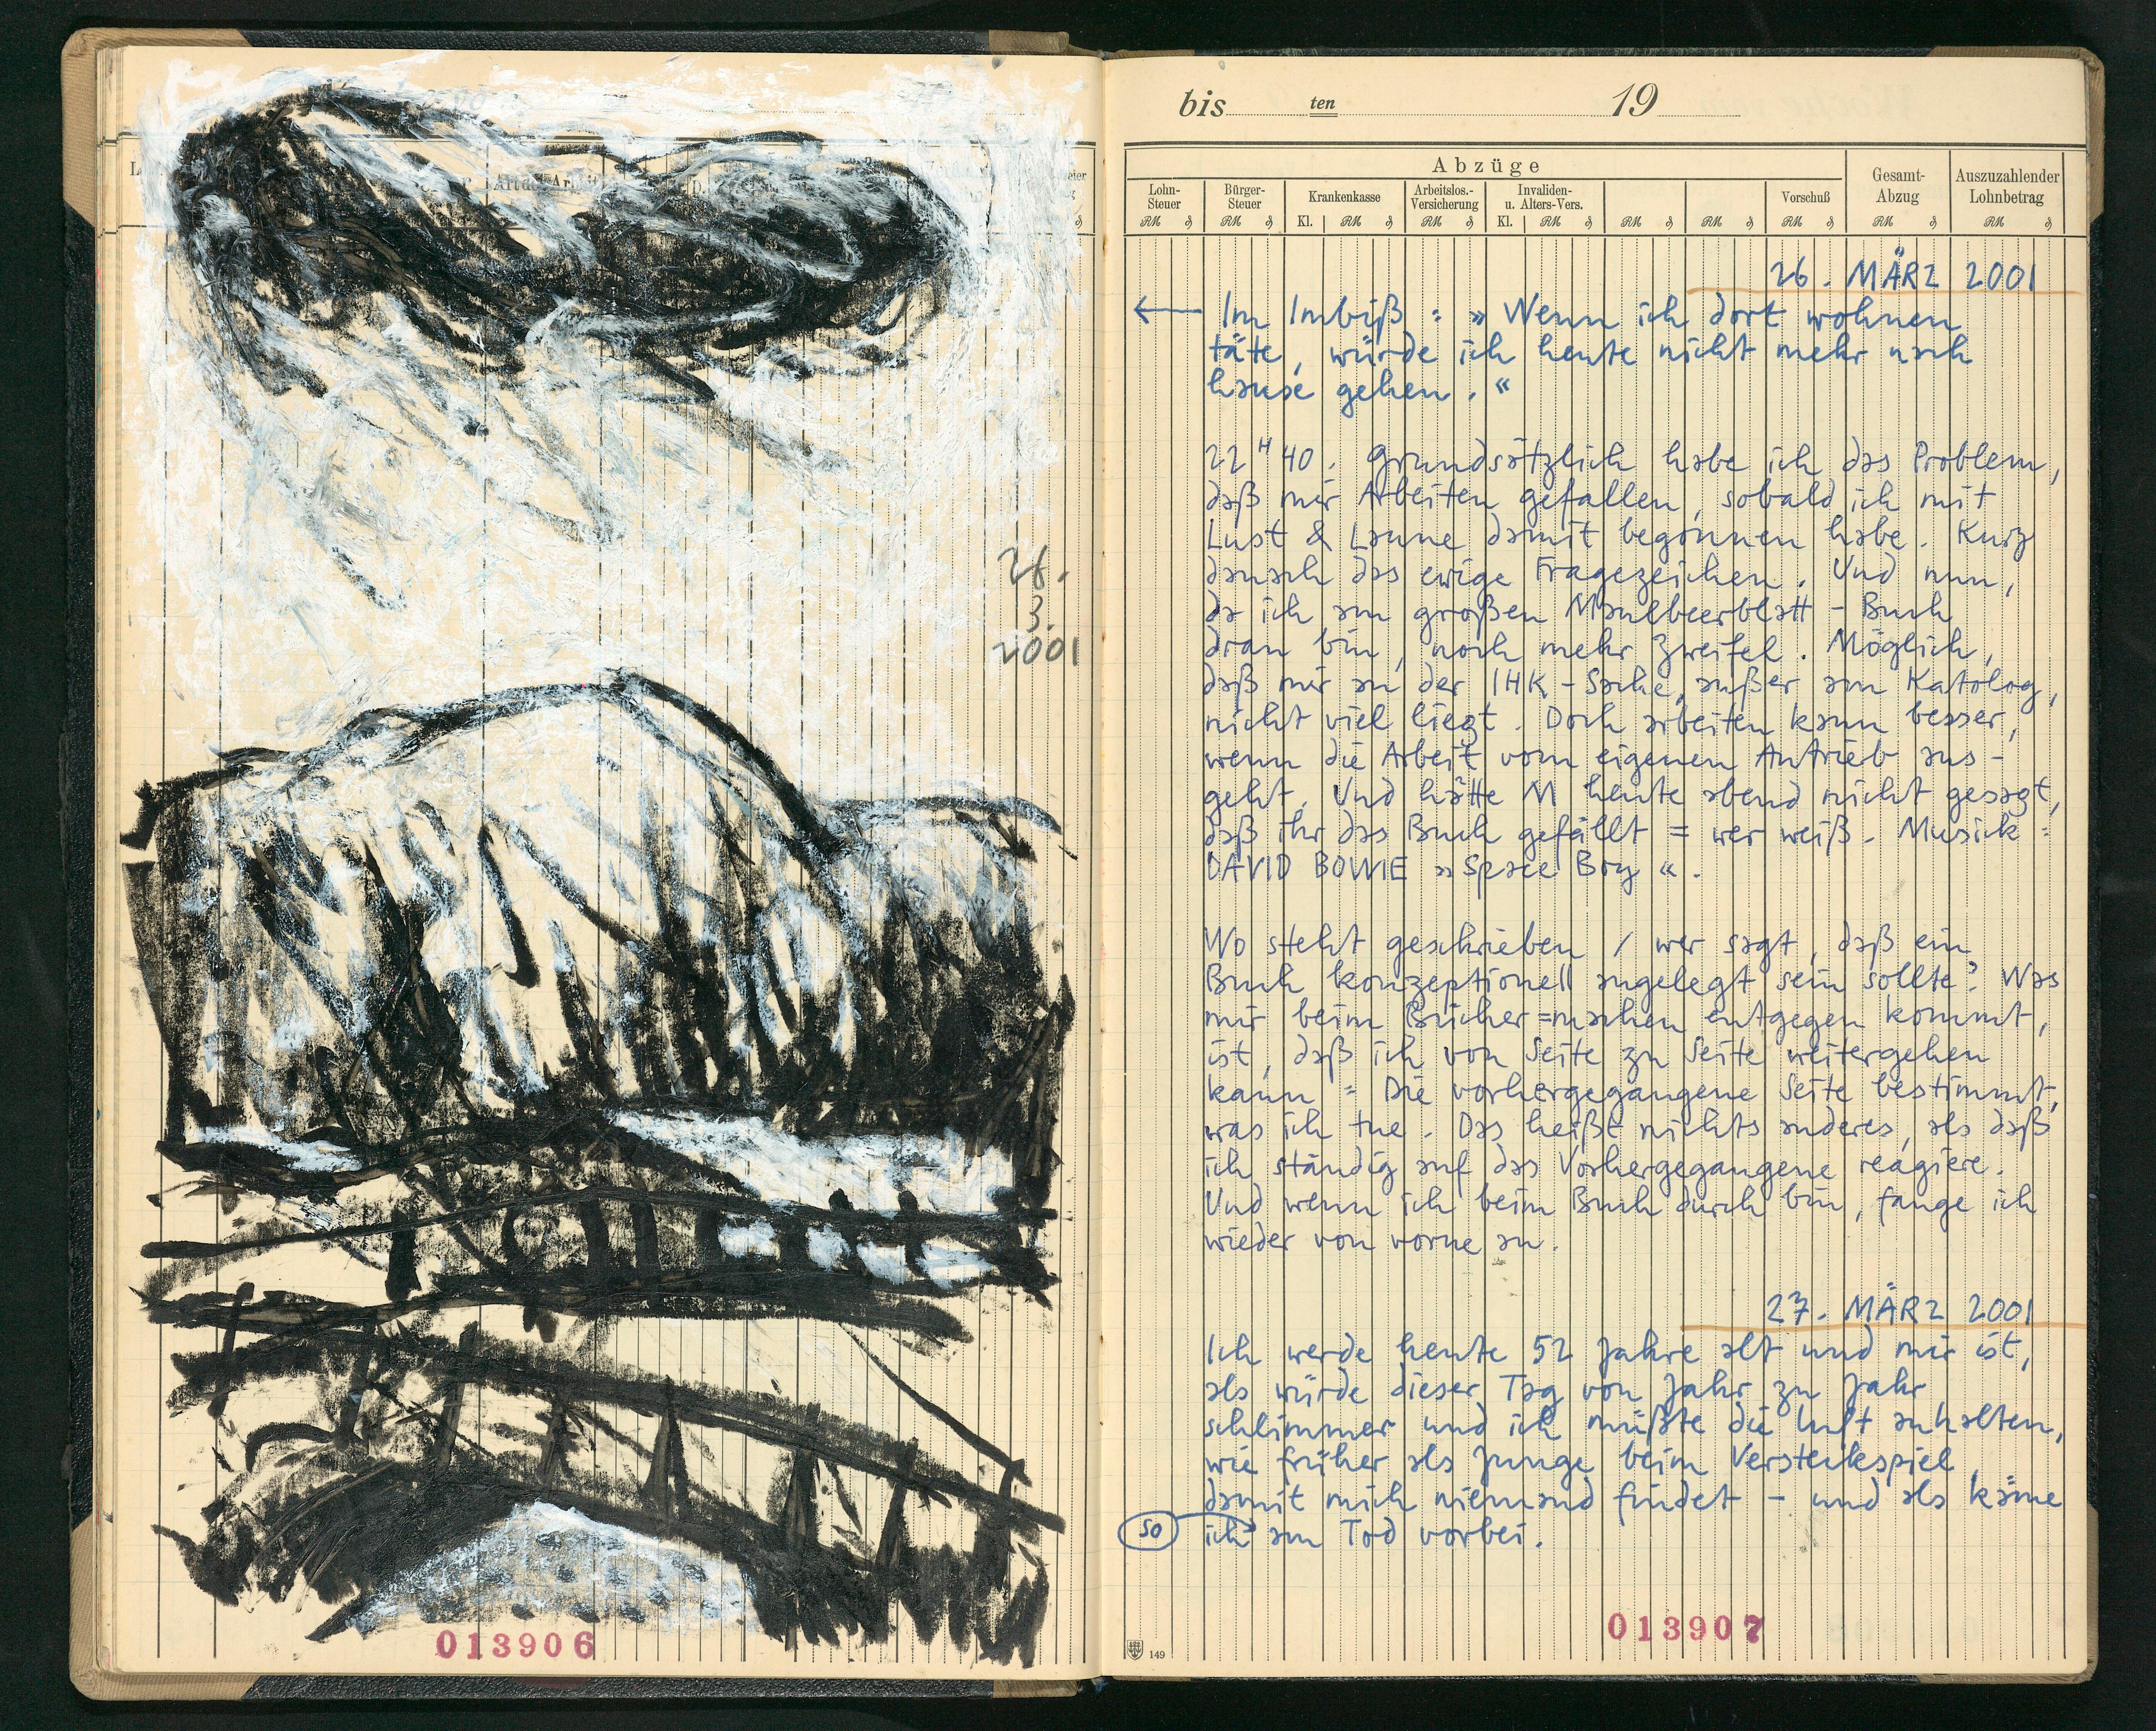 26.
3.
2001
013906
bis ten 19
Abzüge
Lohn-Steuer
Bürger-Steuer
Krankenkasse
Arbeitslos.-Versicherung
Invaliden- u. Alters-Vers.
Vorschuß
Gesamt-Abzug
Auszuzahlender Lohnbetrag
RM ₰ RM ₰ Kl. RM ₰ RM ₰ Kl. RM ₰ RM ₰ RM ₰ RM ₰ RM ₰ RM ₰
26. MÄRZ 2001
← Im Imbiß : » Wenn ich dort wohnen
täte, würde ich heute nicht mehr nach
hause gehen. «
22 H 40. Grundsätzlich habe ich das Problem,
daß mir Arbeiten gefallen, sobald ich mit
Lust & Laune damit begonnen habe. Kurz
danach das ewige Fragezeichen. Und nun,
da ich am großen Maulbeerblatt - Buch
dran bin, noch mehr Zweifel. Möglich,
daß mir an der IHK - Sache, außer am Katolog,
nicht viel liegt. Doch arbeiten kann besser,
wenn die Arbeit vom eigenen Antrieb aus-
geht. Und hätte M heute abend nicht gesagt,
daß ihr das Buch gefällt = wer weiß. Musick =
DAVID BOWIE » Space Boy « .
Wo steht geschrieben / wer sagt, daß ein
Buch konzeptionell angelegt sein sollte? Was
mir beim Bücher=machen entgegen kommt,
ist, daß ich von Seite zu Seite weitergehen
kann = Die vorhergegangene Seite bestimmt,
was ich tue. Das heißt nichts anderes, als daß
ich ständig auf das Vorhergegangene reagiere.
Und wenn ich beim Buch durch bin, fange ich
wieder von vorne an.
27. MÄRZ 2001
Ich werde heute 52 Jahre alt und mir ist,
als würde dieser Tag von Jahr zu Jahr
schlimmer und ich müßte die Luft anhalten,
wie früher als Junge beim Versteckspiel,
damit mich niemand findet - und als käme
so ich am Tod vorbei.
013907
149